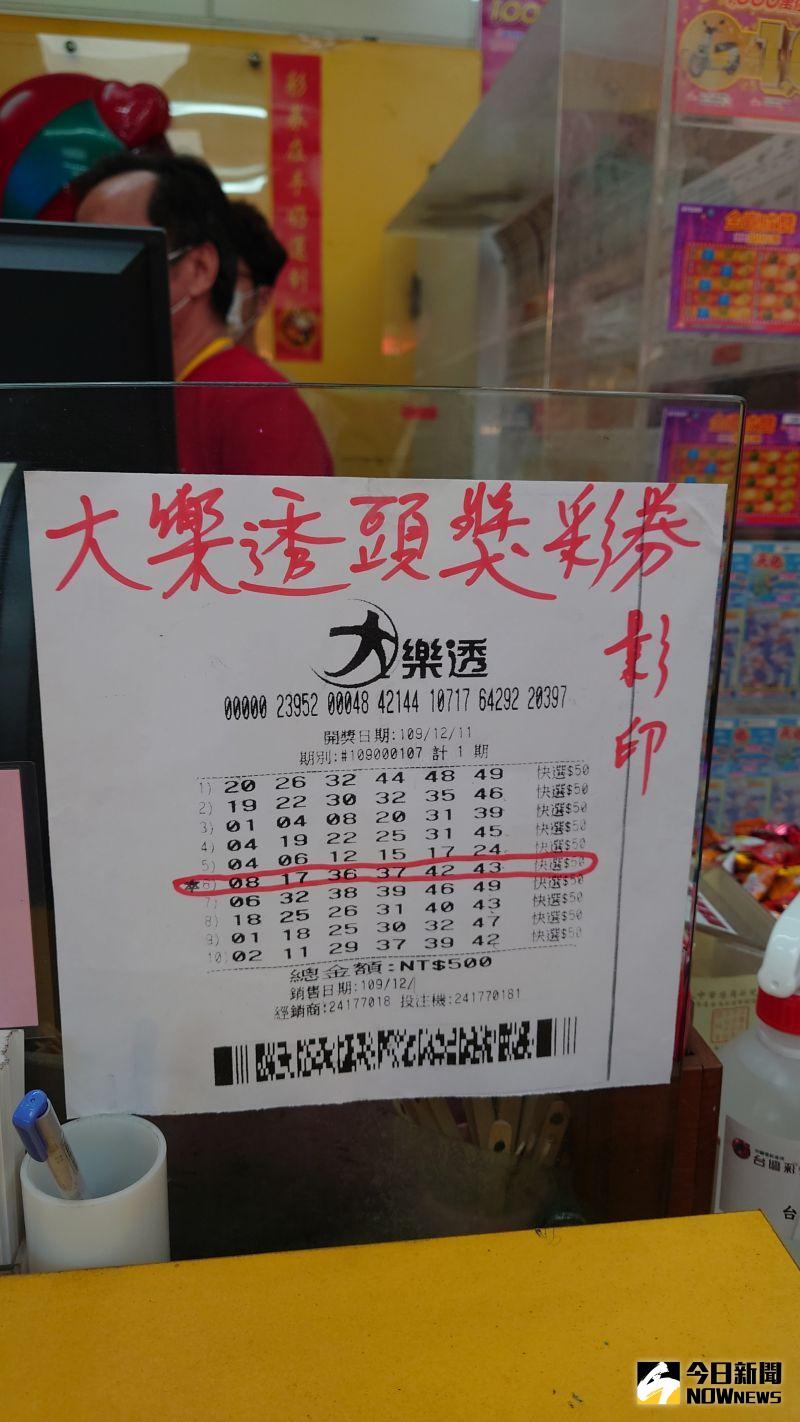 彩券在手好運到
大樂透頭獎彩券
影印
大樂透
00000 23952 00048 42144 10717 64292 20397
開獎日期:109/12/11
期別:#109000107 計 1 期
1) 20 26 32 44 48 49 快選$50
2) 19 22 30 32 35 46 快選$50
3) 01 04 08 20 31 39 快選$50
4) 04 19 22 25 31 45 快選$50
5) 04 06 12 15 17 24 快選$50
6) 08 17 36 37 42 43 快選$50
7) 06 32 38 39 46 49 快選$50
8) 18 25 26 31 40 43 快選$50
9) 01 18 25 30 32 47 快選$50
10) 02 11 29 37 39 42 快選$50
總金額:NT$500
銷售日期:109/12/
經銷商:24177018 投注機:241770181
台灣彩
台
今日新聞
NOWNEWS